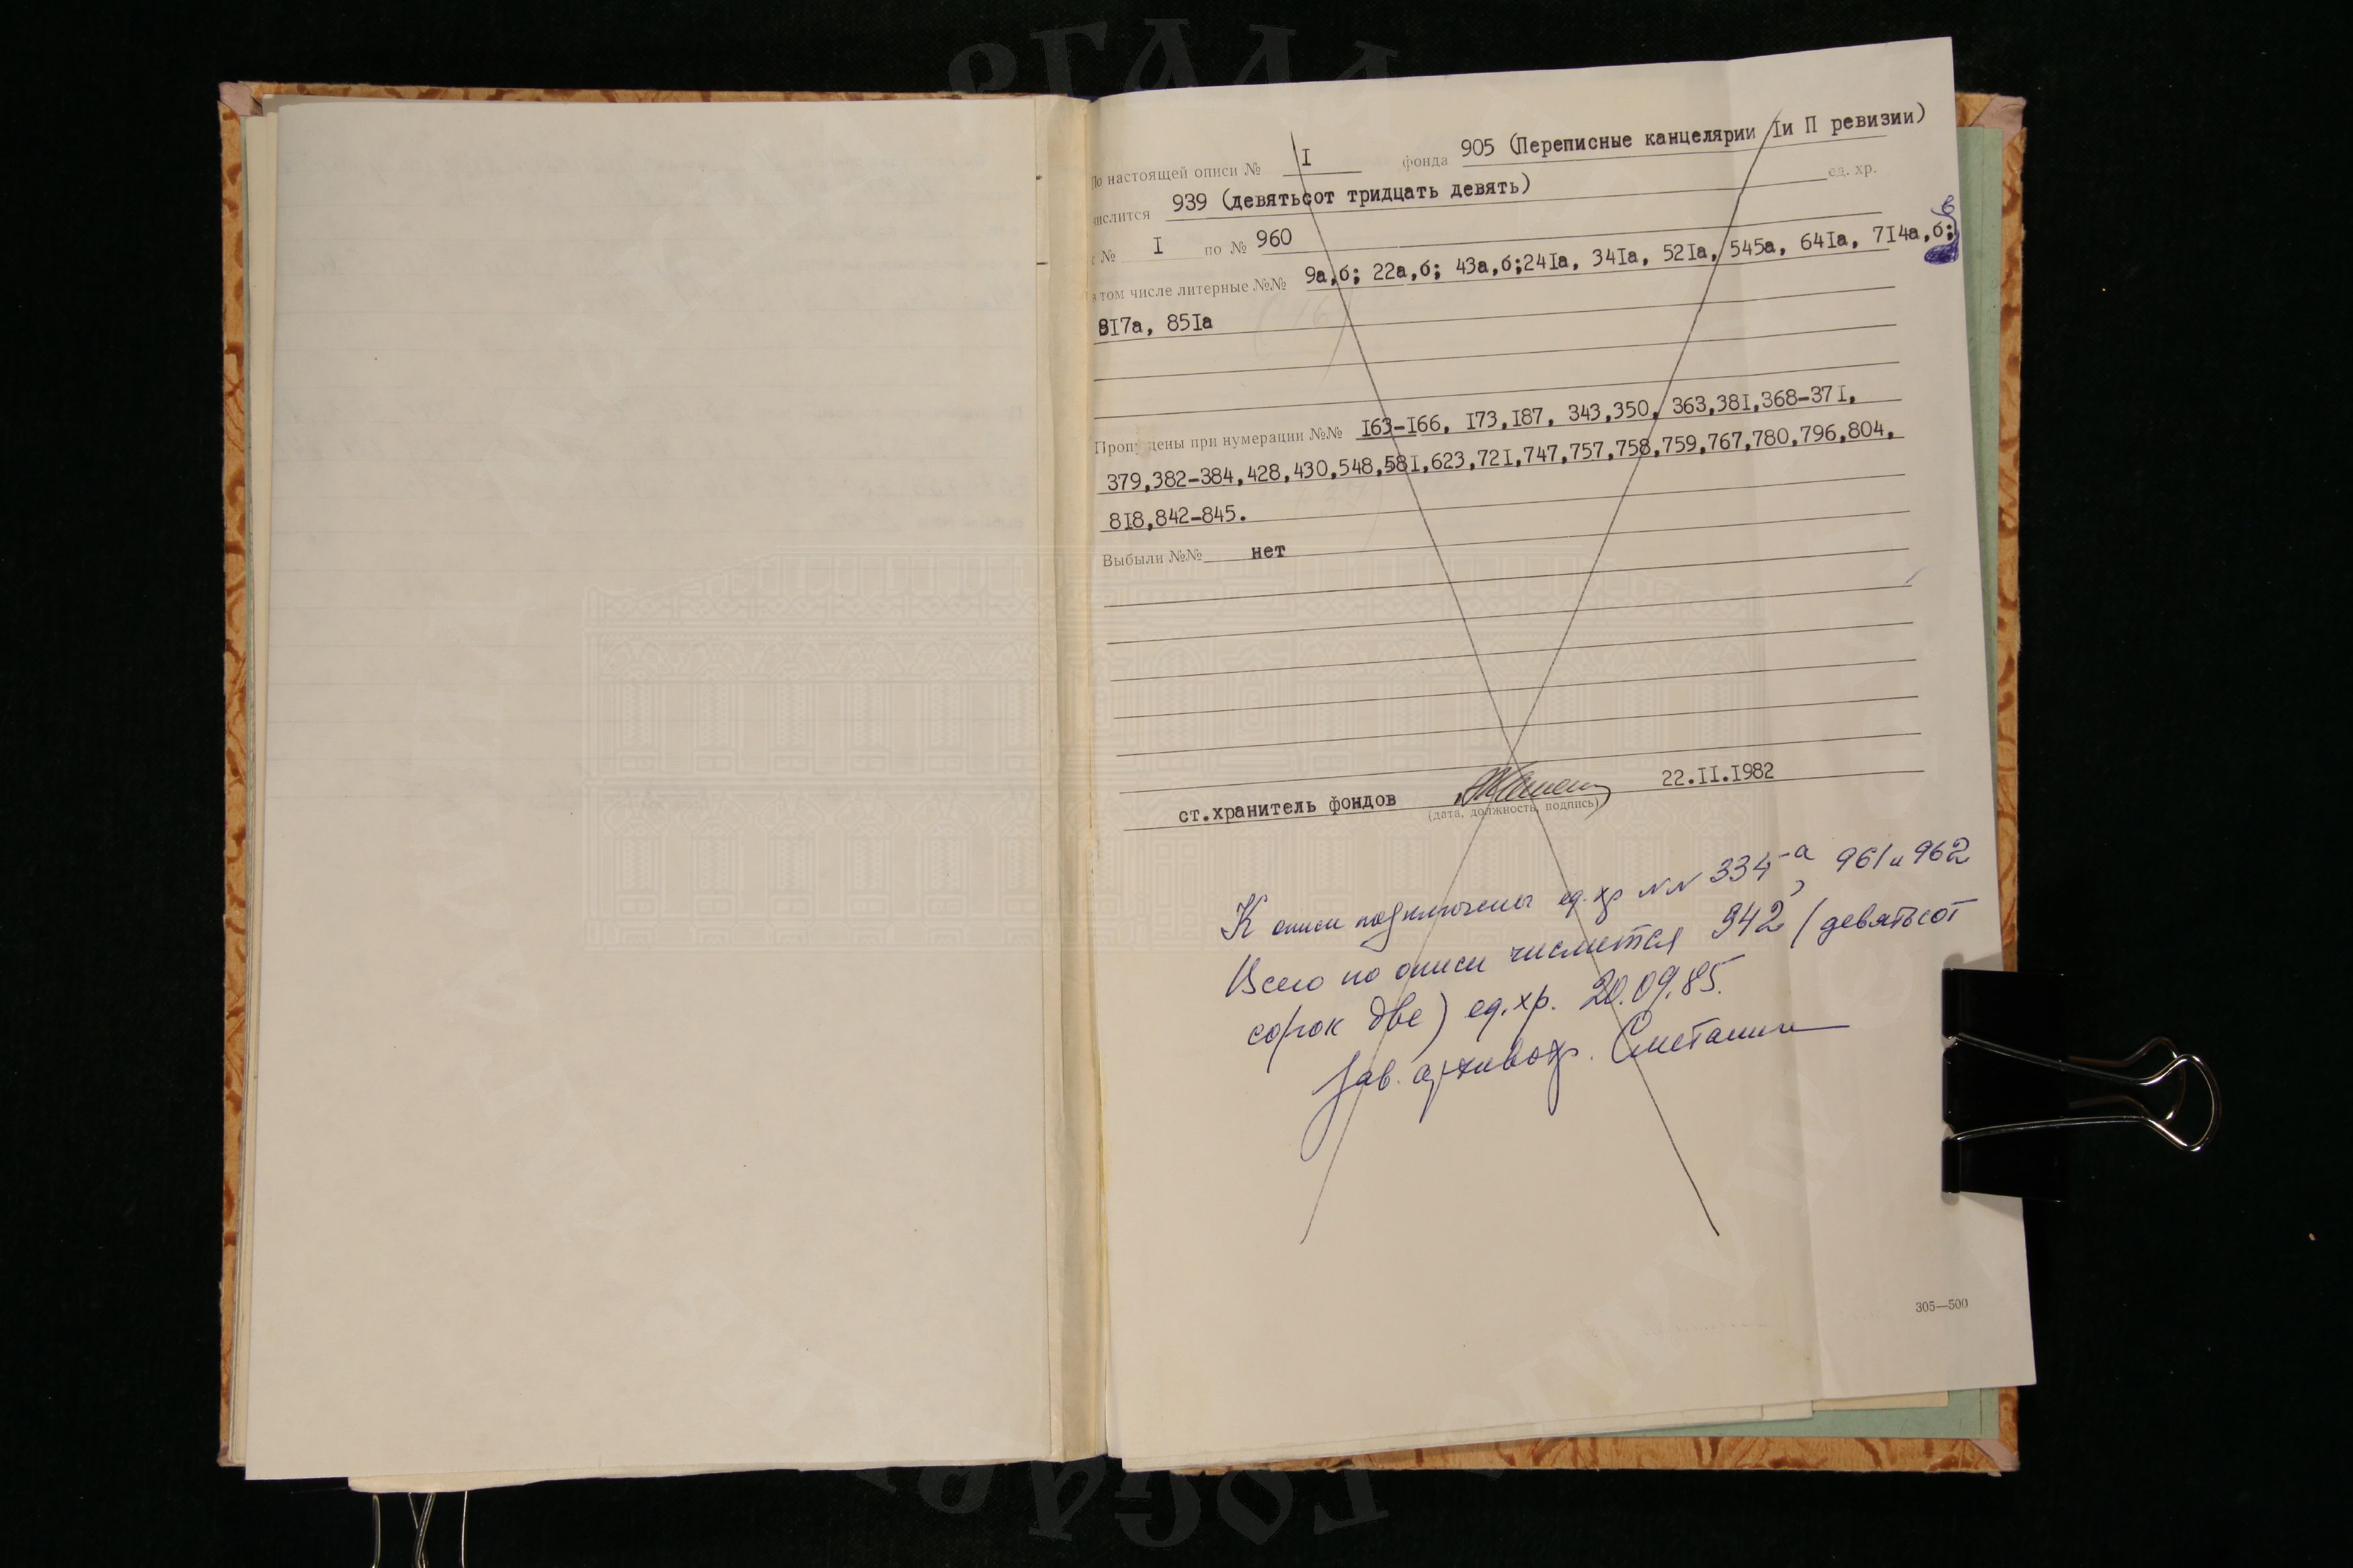 РГАДА
По настоящей описи № I фонда 905 (Переписные канцелярии Iи П ревизии)
числится 939 (девятьсот тридцать девять) ед. хр.
с № I по № 960
в том числе литерные №№ 9а,б; 22а,б; 43а,б;24Iа, 34Iа, 52Iа, 545а, 64Iа, 7I4а,б;
8I7а, 85Iа
(16)
Пропущены при нумерации №№ I63-I66, I73,I87, 343,350, 363,38I,368-37I,
379,382-384,428,430,548,58I,623,72I,747,757,758,759,767,780,796,804,
8I8,842-845.
Выбыли №№ нет
ст.хранитель фондов 22.II.I982
(дата, должность, подпись)
К описи подключены ед.хр NN 334-а, 961 и 962
Всего по описи числится 942 (девятьсот
сорок две) ед.хр. 20.09.85.
Зав. архивохр. Сметанин
305—500